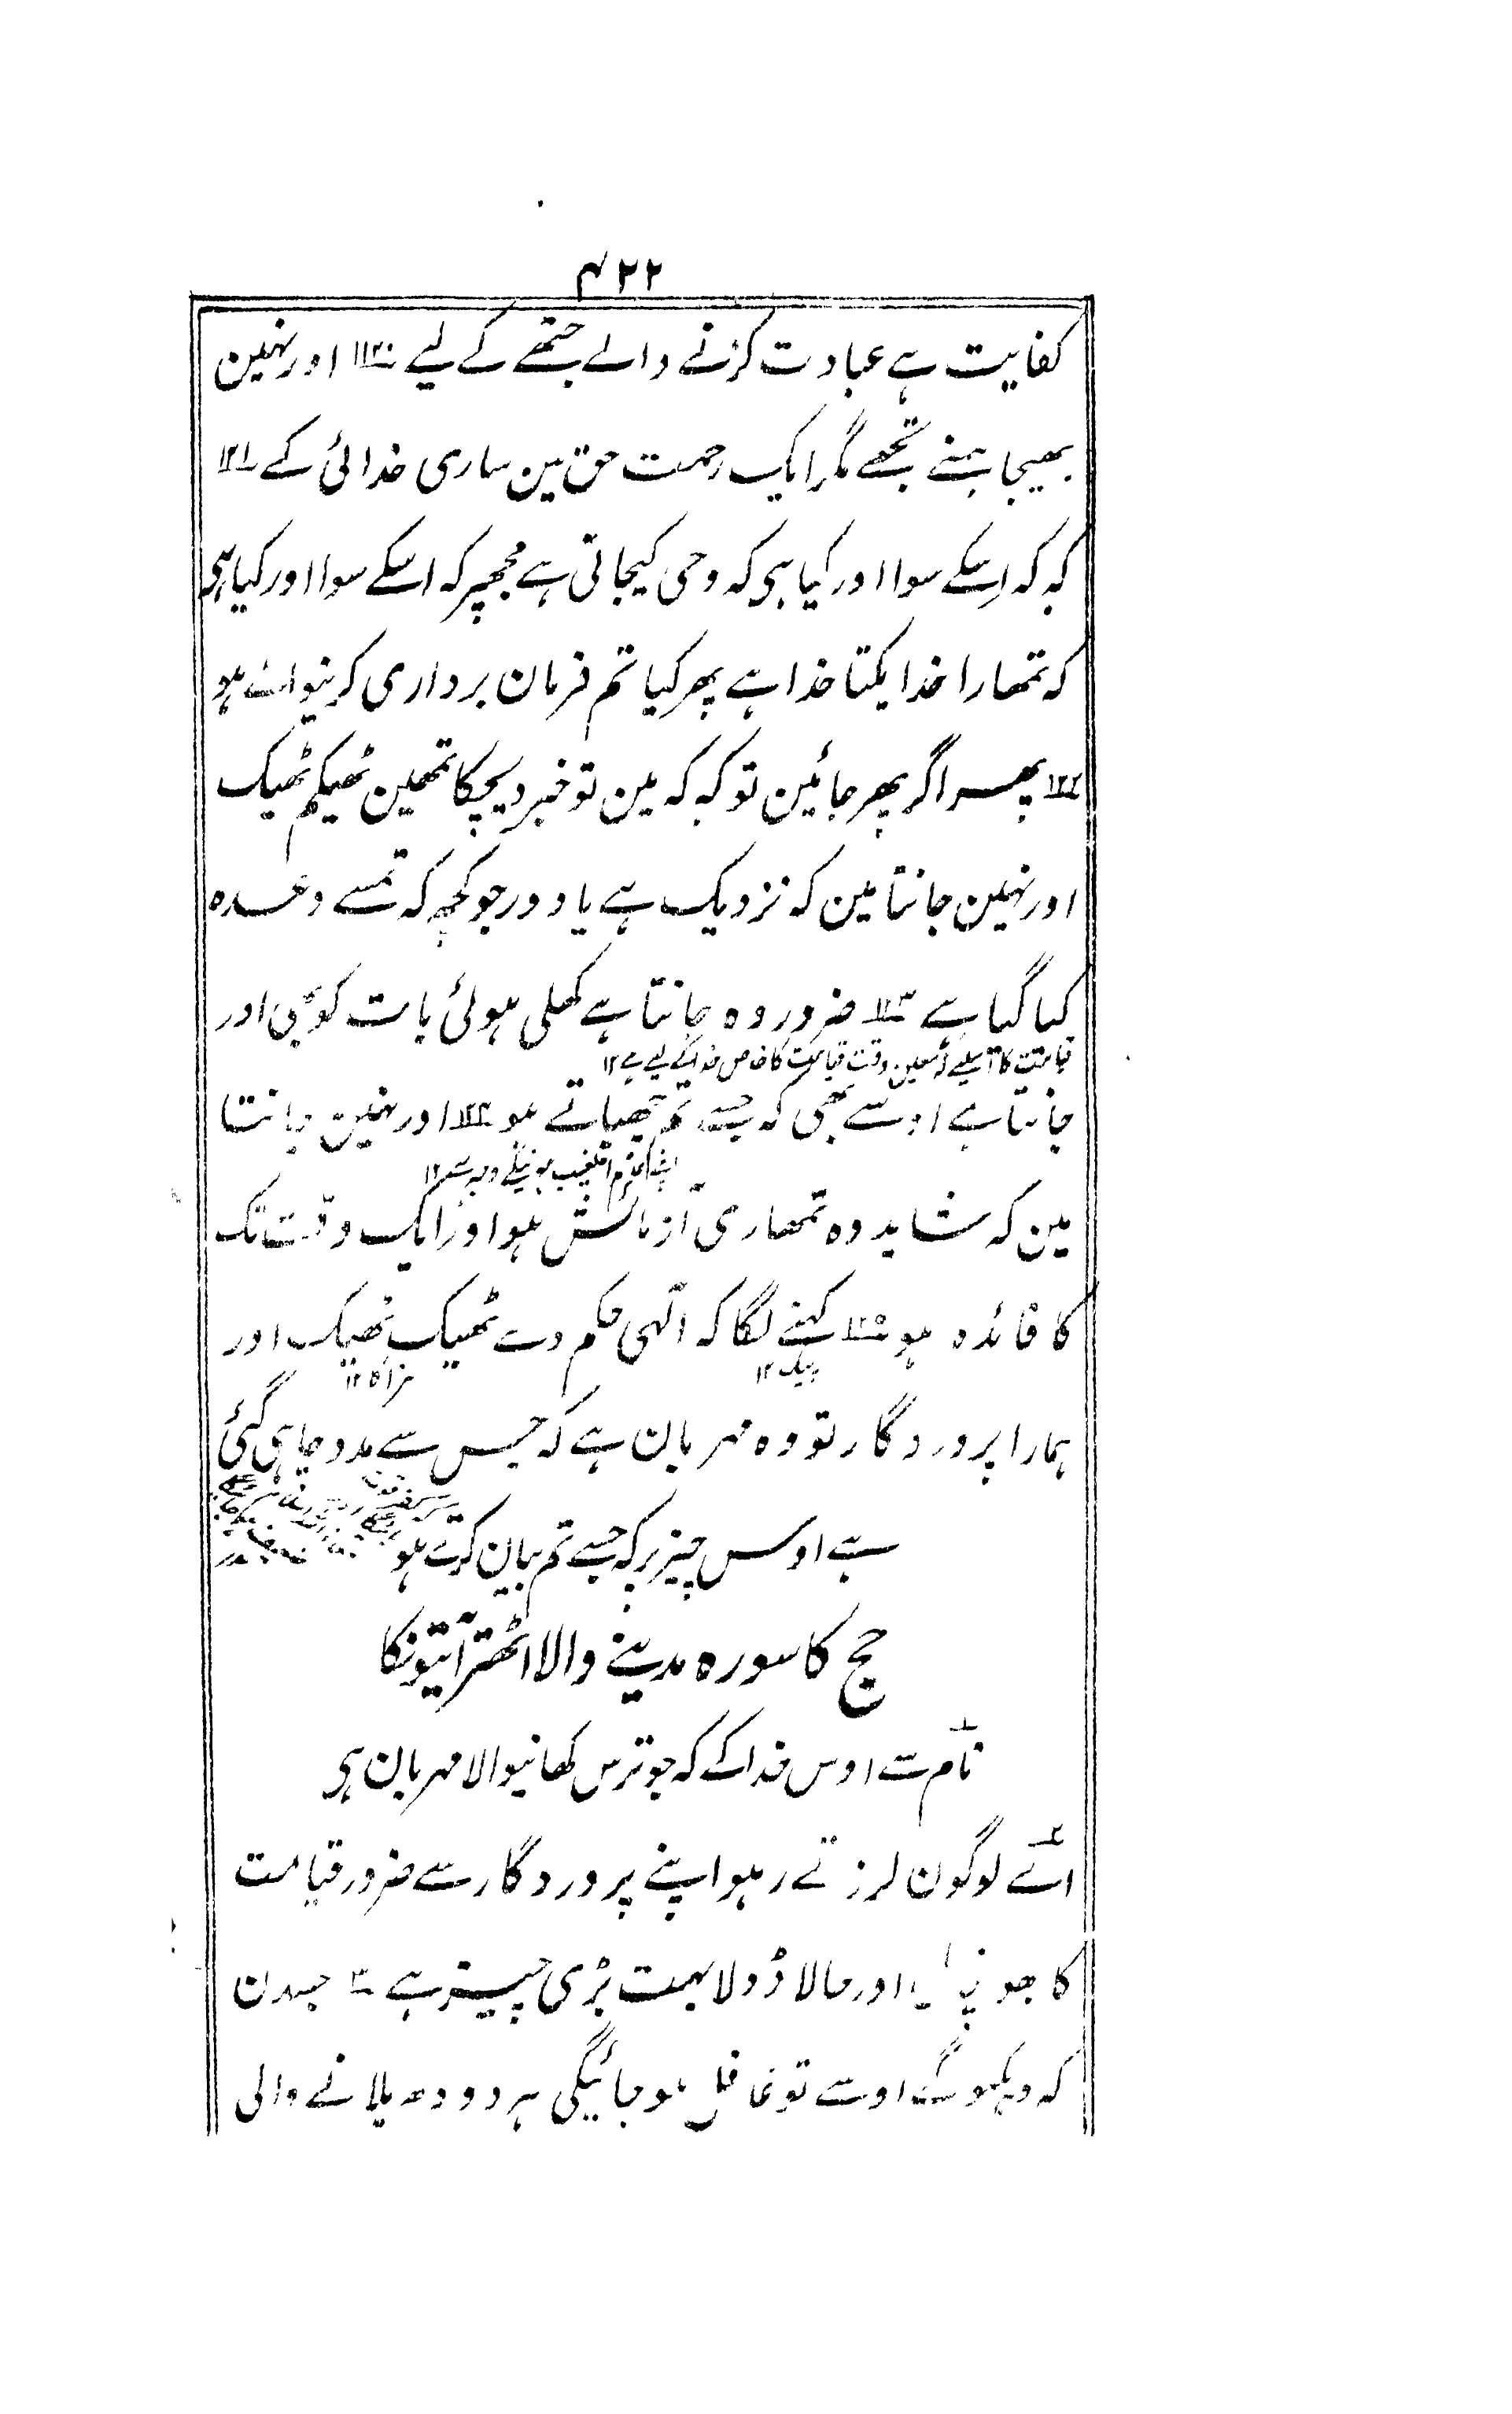 ۴۲۲
کفایت ہے عبادت کرنے والے جتھے کے لیے ۱۲۰ اور نہین
بھیجا ہمنے تجھے مگر ایک رحمت حق مین ساری خدائی کے ۱۲۱
کہہ کہ اِسکے سوا اور کیا ہی کہ وحی کیجاتی ہے مجھپر کہ اسکے سوا اور کیا ہی
کہ تمھارا خدا یکتا خدا ہے پھر کیا تم فرمان برداری کرنیوالے ہو
۱۲۲ پھر اگر پھر جائین تو کہہ کہ مین تو خبر دیچکا تمھین ٹھیکم ٹھیک
اور نہین جانتا مین کہ نزدیک ہے یا دور جو کچھ کہ تمسے وعدہ
کیا گیا ہے ۱۲۳ ضرور وہ جانتا ہے کھلی ہوئی بات کو بھی اور
وقت قیامت کا خاص خدا کے لیے ہے ۱۲
جانتا ہے اوسے بھی کہ جسے تم چھپاتے ہو ۱۲۴ اور نہین جانتا
مین کہ شاید وہ تمھاری آزمائش ہو اور ایک وقت تک
کا فائدہ ہو ۱۲۵ کہنے لگا کہ الٰہی حکم دے ٹھیک ٹھیک اور
ہمارا پروردگار تو وہ مہربان ہے کہ جس سے مدد چاہی گئی
ہے اوس چیز پر کہ جسے تم بیان کرتے ہو
حج کا سورہ مدینے والا اٹھتر آیتونکا
نام سے اوس خدا کے کہ جو ترس کھانیوالا مہربان ہی ۱
اے لوگون لرزتے رہو اپنے پروردگار سے ضرور قیامت ۲
کا اور ہالا ڈولا بہت بڑی چیز ہے ۳ جسدن
کہ دیکھوگے اوسے تو غافل ہو جائیگی ہر دودھ پلانے والی